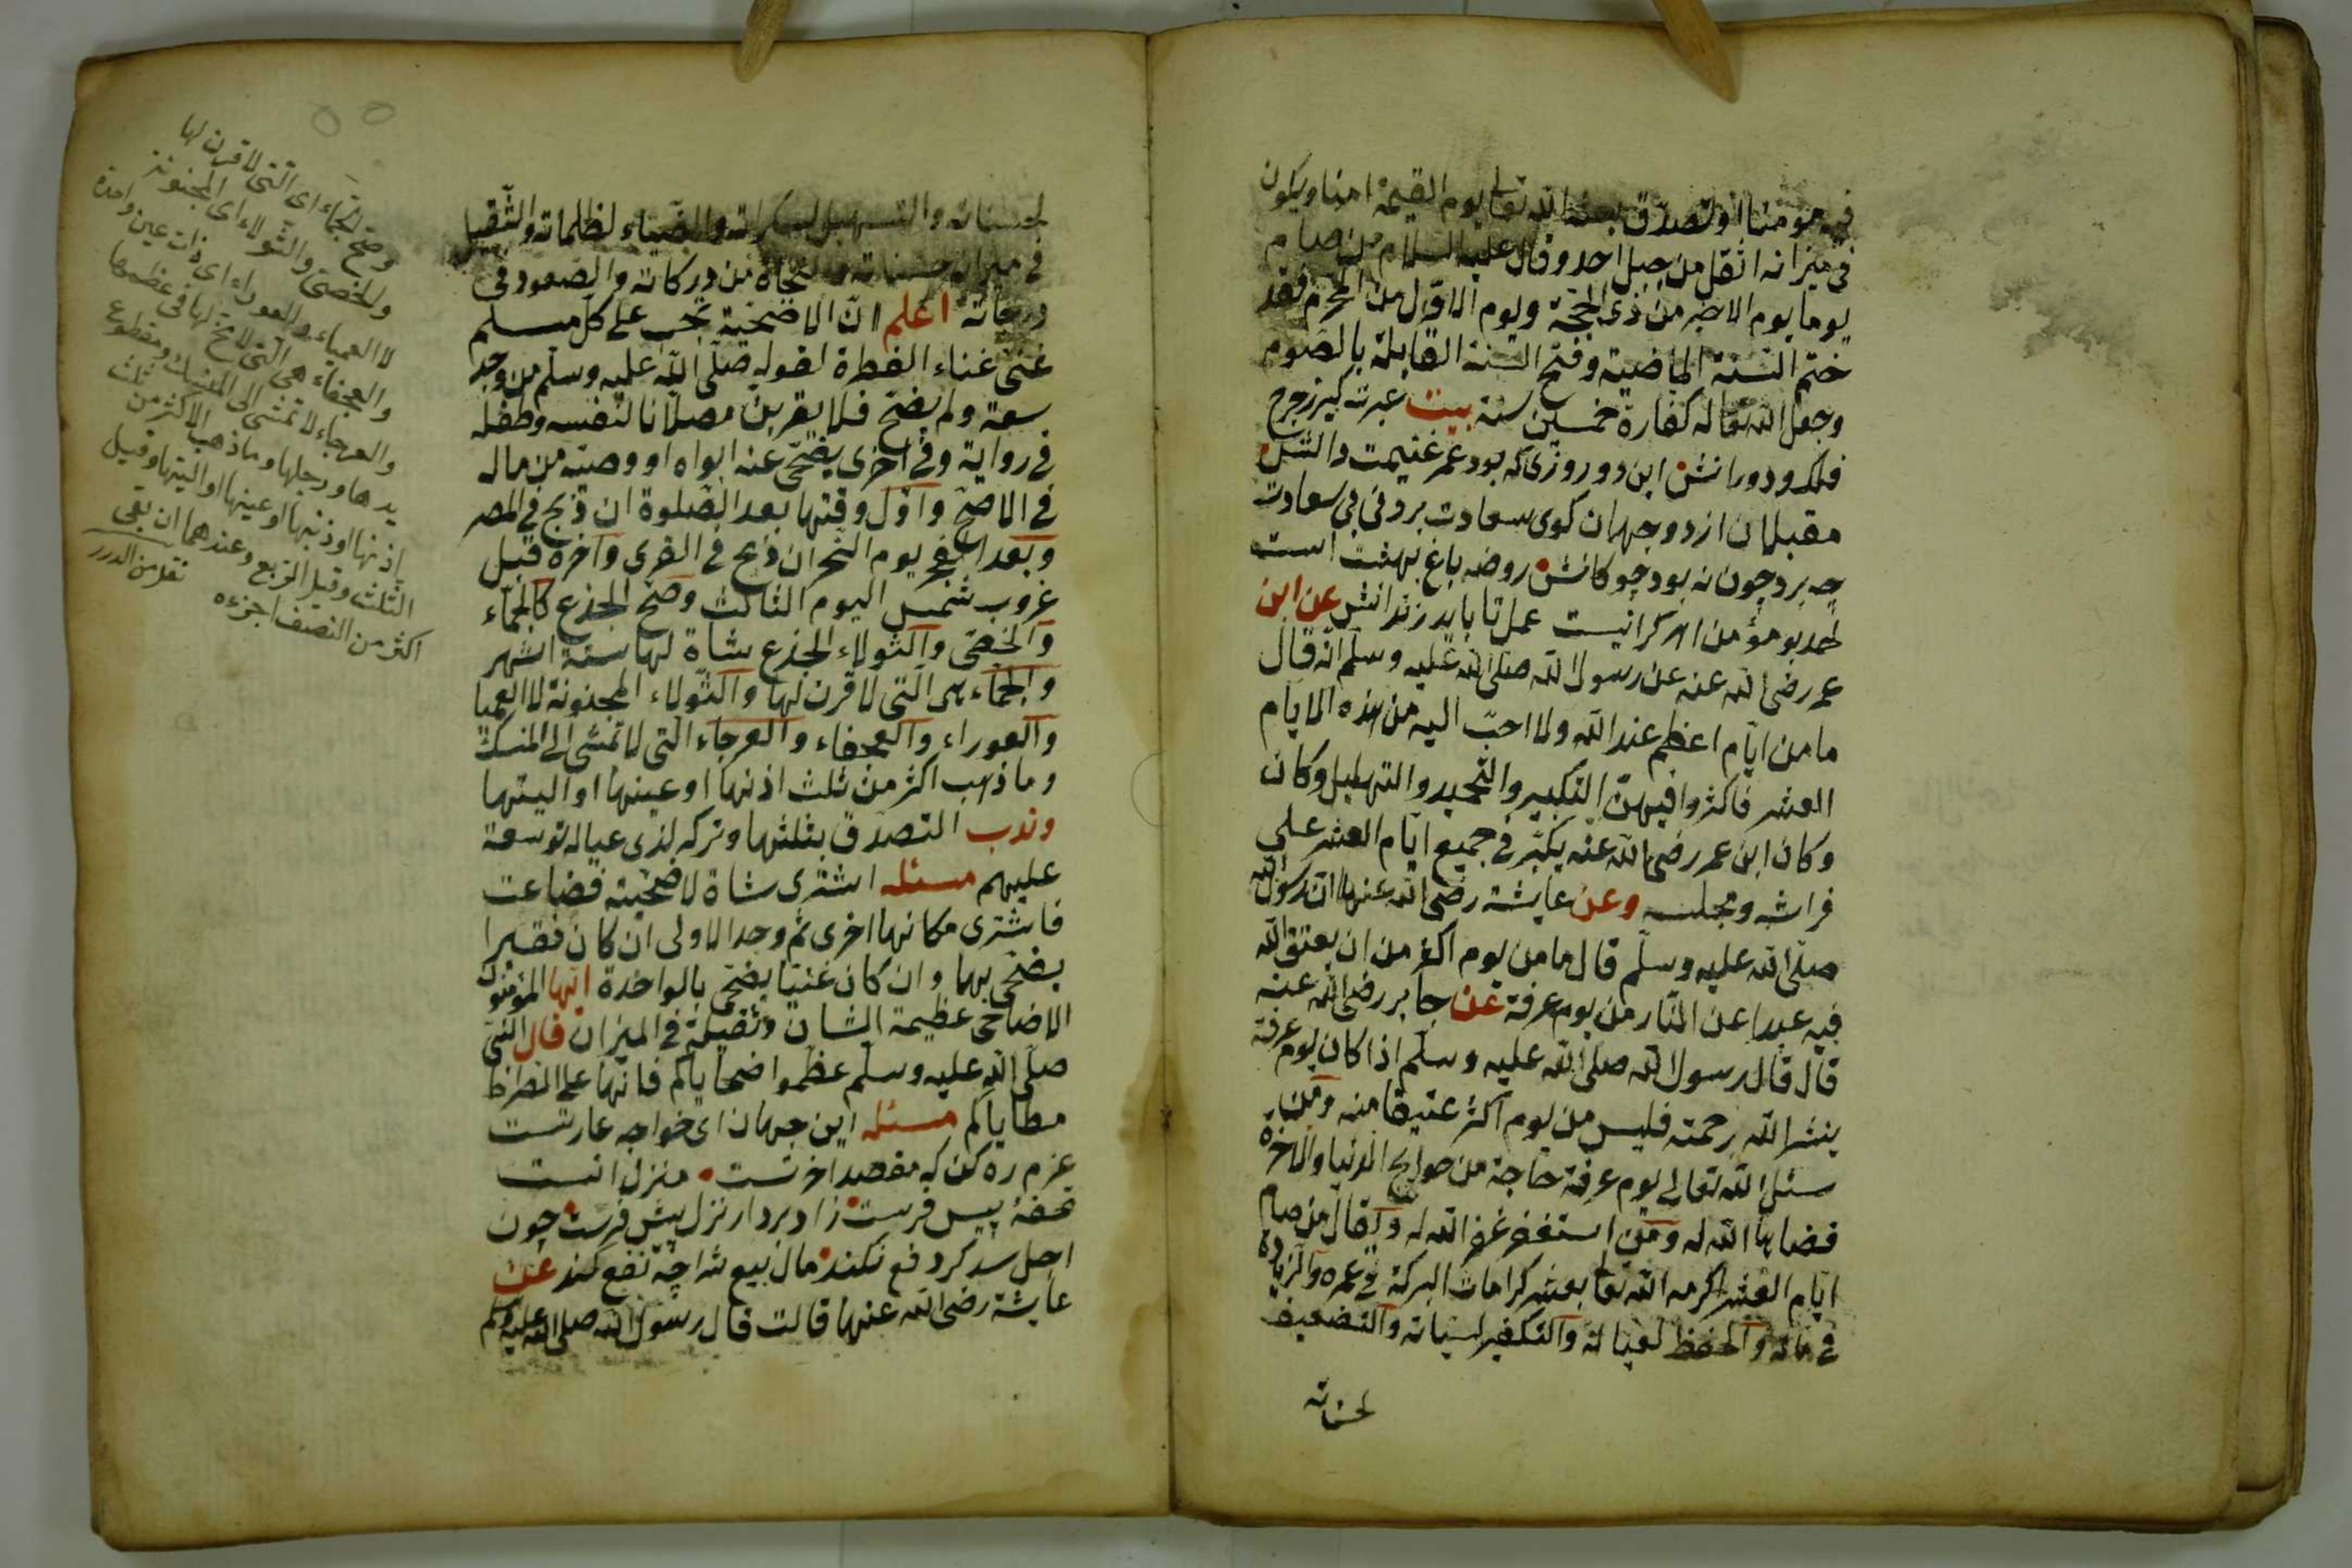 فيه مؤمنا او تصدق بعثه الله تعالى يوم القيمة امنا ويكون
في ميزانه اثقل من جبل احد وقال عليه السلام من صام
يوما يوم الاخير من ذى الحجة ويوم الاول من المحرم فقد
ختم السنة الماضية وفتح السنة القابلة بالصوم
وجعل الله تعالى له كفارة خمسين سنة بيت عبرت كيرز چرخ
فلك ودورانش اين دو روزى كه بود عمر غنيمت دانش
مقبلان از دو جهان كوى سعادت بردنى بى سعادت
چه برد چون نه بود چوكانش روضه باغ بهشت است
عمل تا بايد عن ابن
عمر رضى الله عنه عن رسول الله صلى الله عليه وسلم انه قال
ما من ايام اعظم عند الله ولا احب اليه من هذه الايام
العشر فاكثروا فيهن التكبير والتحميد والتهليل وكان
وكان ابن عمر رضى الله عنه يكبر في جميع ايام العشر على
فراشه ومجلسه وعن عايشة رضى الله عنها ان رسول الله
صلى الله عليه وسلم قال ما من يوم اكثر من ان يعتق الله
فيه عبدا عن النار من يوم عرفة عن جابر رضى الله عنه
قال قال رسول الله صلى الله عليه وسلم اذا كان يوم عرفة
ينشر الله رحمته فليس من يوم اكثر عتيقا منه ومن
سئل الله تعالى يوم عرفة حاجة من حوايج الدنيا والاخرة
قضاها الله له ومن استغفر غفر الله له ويقال من صام
ايام العشر اكرمه الله تعالى بعشر كرامات البركة في عمره والزيادة
في ماله والحفظ لعياله والتكفير لسيئاته والتضعيف
لحسناته
لحسناته والتسهيل لسكراته والضياء لظلماته والثقيل
في ميزان حسناته والنجاة من دركاته والصعود في
درجاته اعلم ان الاضحية تجب على كل مسلم
غنى غناء الفطرة لقوله صلى الله عليه وسلم من وجد
سعة ولم يضح فلا يقربن مصلانا لنفسه وطفله
في رواية وفي اخرى يضحى عنه ابواه او وصيه من ماله
في الاصح واول وقتها بعد الصلوة ان ذبح في المصر
وبعد الفجر يوم النحر ان ذبح في القرى واخره قبل
غروب شمس اليوم الثالث وصح الجذع كالجماء
والخصى والثولاء الجذع شاة لها ستة اشهر
والجماء هى التى لا قرن لها والثولاء المجنونة لا العميا
والعوراء والعجفاء والعرجاء التى لا تمشى الى المنسك
وما ذهب اكثر من ثلث اذنها او عينها او اليتها
وندب التصدق بثلثها وتركه لذى عياله توسعة
عليهم مسئله اشترى شاة لاضحية فضاعت
فاشترى مكانها اخرى ثم وجد الاولى ان كان فقيرا
يضحى بهما وان كان غنيا يضحى بالواحدة ايها المؤمنون
الاضاحى عظيمة الشان وثقيلة في الميزان قال النبى
صلى الله عليه وسلم عظموا ضحاياكم فانها على الصراط
مطاياكم مسئله اين جهان اى خواجه عارتست
عزم ره كن كه مقصد اخرتست منزل انست
تحفه پيس فرست زاد بردار نزل پيش فرست چون
اجل سد كرد دفع نكند مال بيع شد اچه نفع كند عن
عايشة رضى الله عنها قالت قال رسول الله صلى الله عليه وسلم
وصح الجماء اى التى لا قرن لها
والخصى والثولاء اى المجنونة
لا العمياء والعوراء اى ذات عين واحدة
والعجفاء هى التى لا مخ لها في عظمها
والعرجاء لا تمشى الى المنسك ومقطوع
يدها ورجلها وما ذهب الاكثر من ثلث
اذنها او ذنبها او عينها او اليتها وقيل
الثلث وقيل الربع وعندهما ان بقى
اكثر من النصف اجزءه نقل من الدرر